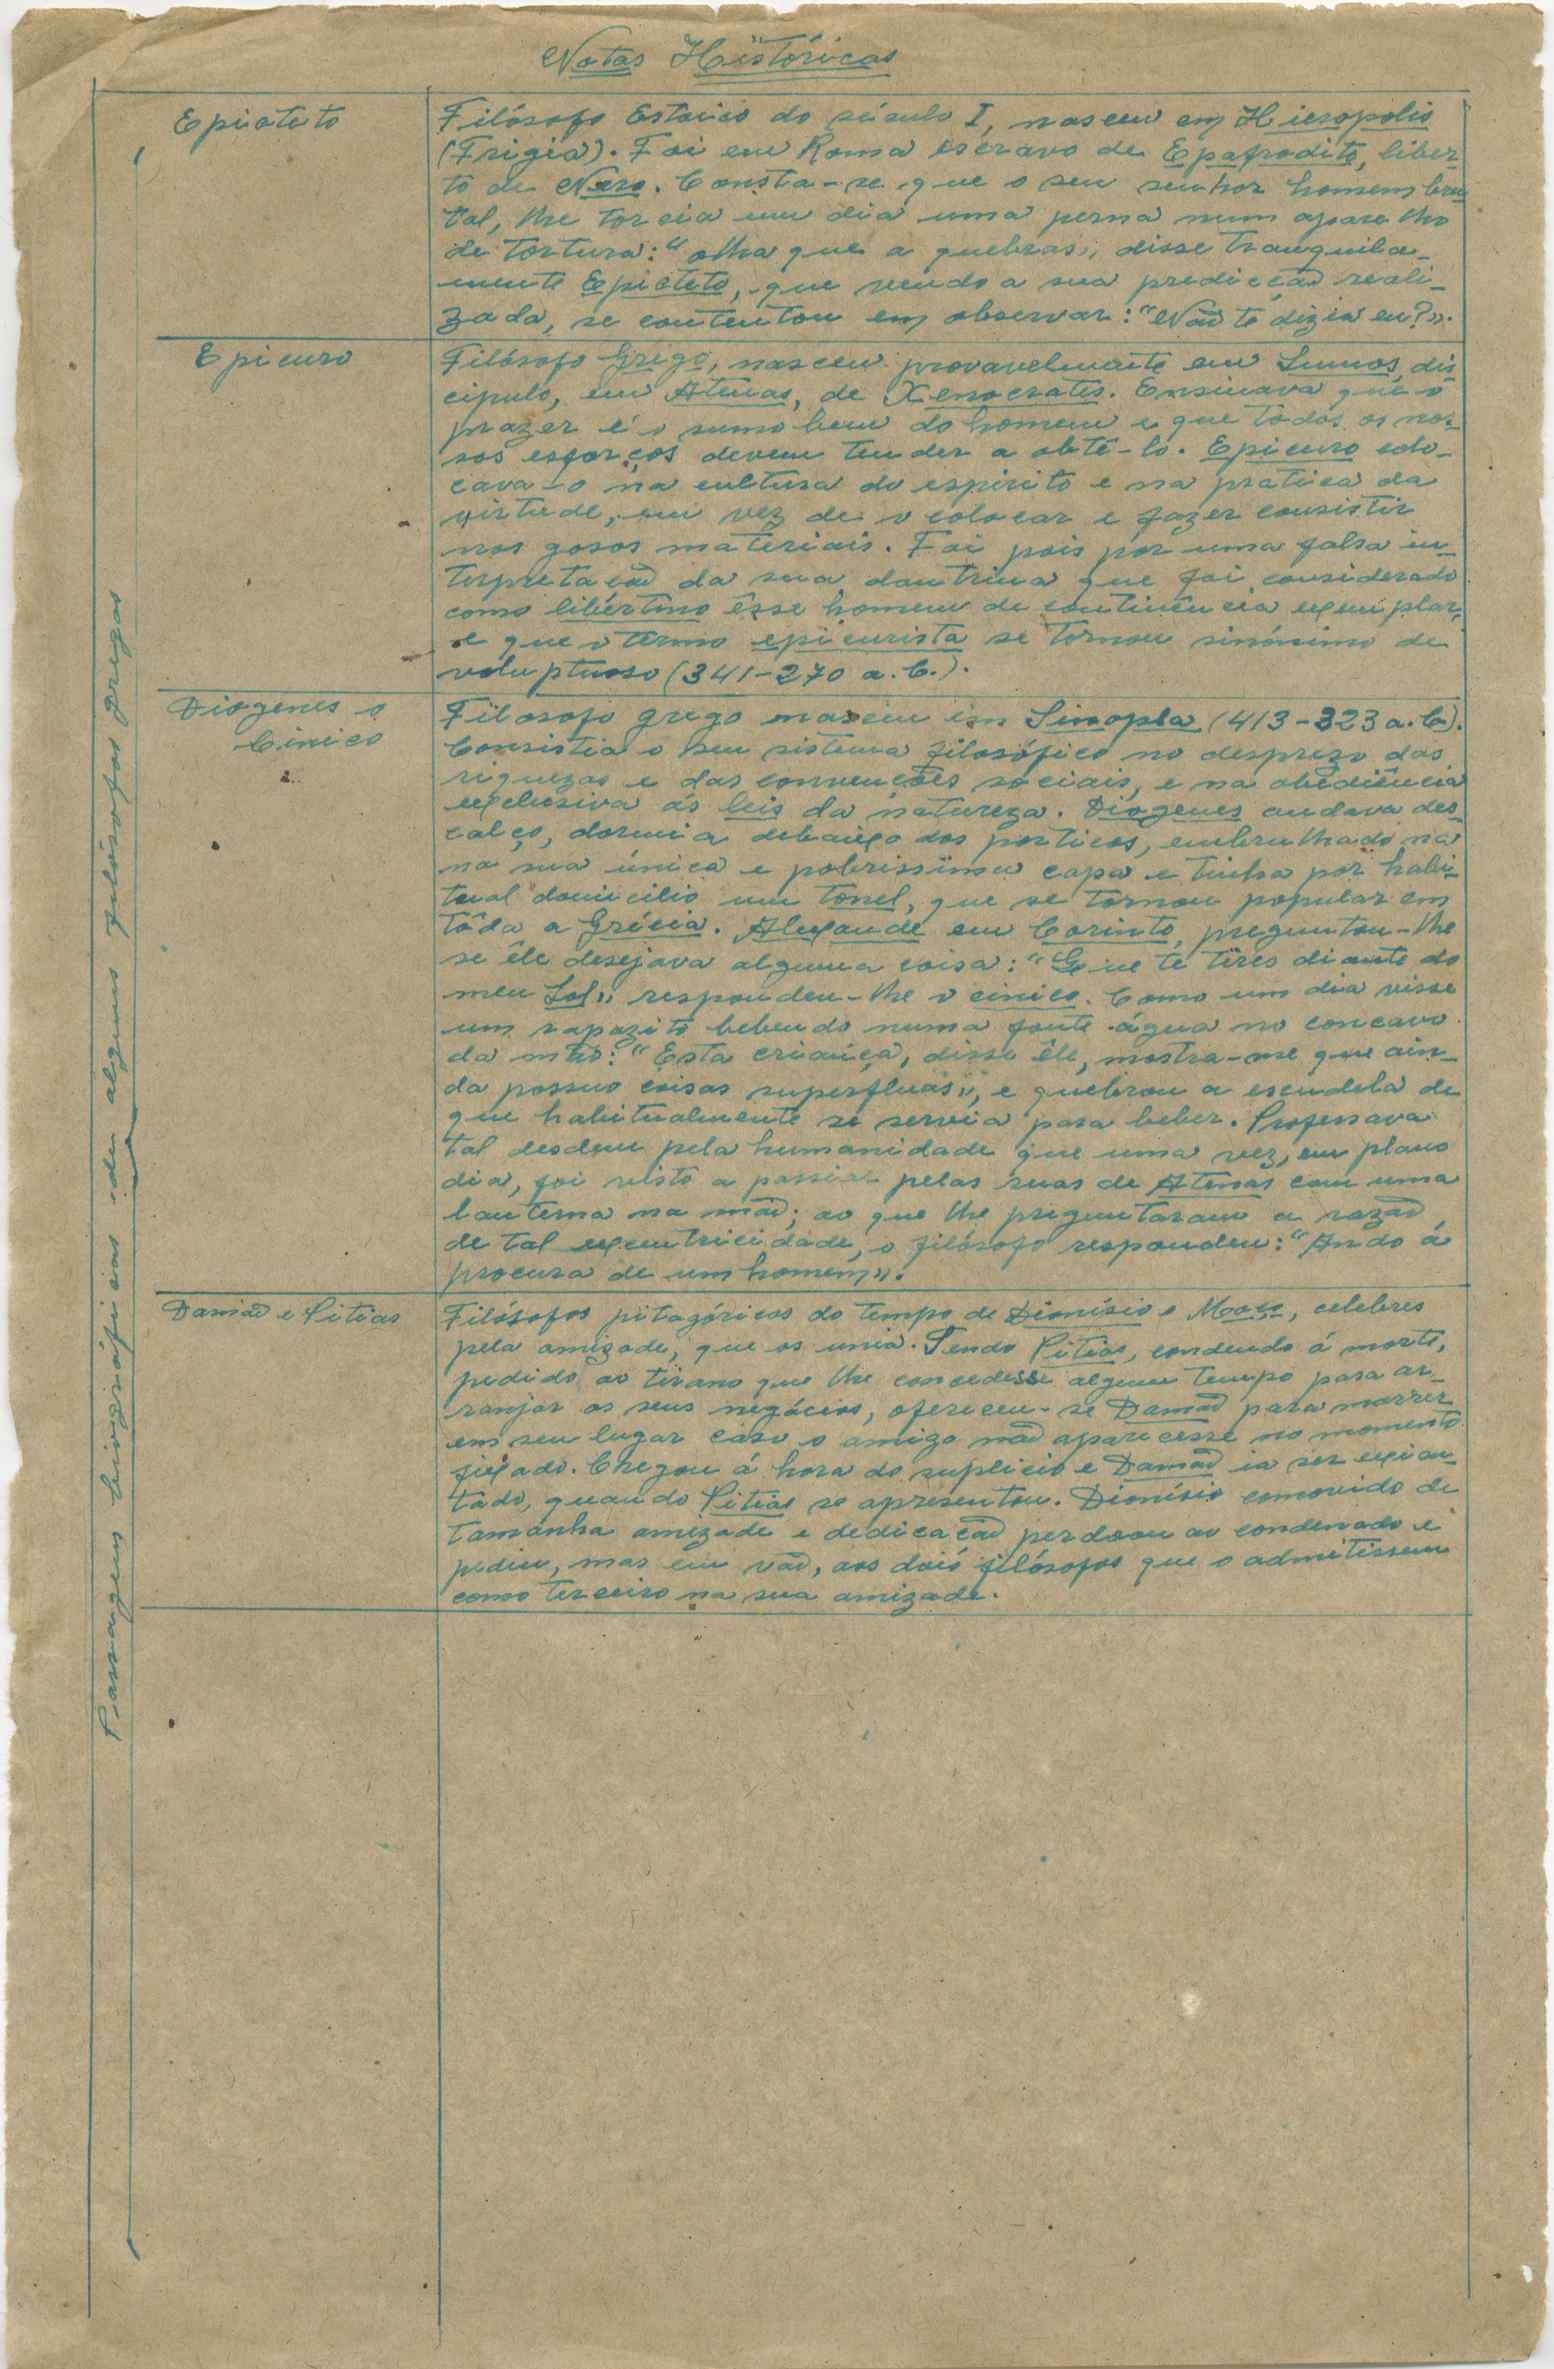 Notas Históricas
Passagens biográficas de alguns filósofos gregos
Epicteto
Filósofo Estoico do século I, nasceu em Hierapolis
(Frigia). Foi em Roma escravo de Epafrodito, liber-
to de Nero. Consta-se que o seu senhor homem bru
tal, lhe torcia um dia uma perna num aparelho
de tortura: "olha que a quebras», disse tranquila-
mente Epicteto, que vendo a sua predicção reali-
zada, se contentou em observar: "Não to dizia eu?».
Epicuro
Filósofo Grego, nasceu provavelmente em Samos, dis
cipulo, em Atenas, de Xenocrates. Ensinava que o
prazer é o sumo bem do homem e que todos os nos-
sos esforços devem tender a obtê-lo. Epicuro colo-
cava-o na cultura do espirito e na pratica da
virtude, em vez de o colocar e fazer consistir
nos gosos materiais. Foi pois por uma falsa in-
terpretação da sua doutrina que foi considerado
como libertino êsse homem de continência exemplar,
e que o têrmo epicurista se tornou sinónimo de
voluptuoso (341-270 a. C.).
Diogenes o
Cinico
Filosofo grego nasceu em Sinopla (413-323 a. C.).
Consistia o seu sistema filosófico no desprezo das
riquezas e das convenções sociais, e na obediência
exclusiva ás leis da natureza. Diogenes andava des-
calço, dormia debaixo dos porticos, embrulhado na
na sua única e pobrissima capa e tinha por habi-
tual domicilio um tonel, que se tornou popular em
tôda a Grécia. Alexande em Corinto, preguntou-lhe
se êle desejava alguma coisa: "Que te tires diante do
meu Sol» respondeu-lhe o cinico. Como um dia visse
um rapazito bebendo numa fonte água no concavo
da mão: "Esta criança, disse êle, mostra-me que ain-
da possuo coisas superfluas», e quebrou a escudela de
que habitualmente se servia para beber. Professava
tal desdem pela humanidade que uma vez, em pleno
dia, foi visto a passiar pelas ruas de Atenas com uma
lanterna na mão; ao que lhe preguntaram a razão
de tal excentricidade, o filósofo respondeu: "Ando á
procura de um homem».
Damão e Pitias
Filósofos pitagóricos do tempo de Dionísio o Moço, celebres
pela amizade, que os unia. Tendo Pitias, condendo á morte,
pedido ao tirano que lhe concedesse algum tempo para ar-
ranjar os seus negócios, ofereceu-se Damão para morrer
em seu lugar caso o amigo não aparecesse no momento
fixado. Chegou á hora do suplicio e Damão ia ser exicu-
tado, quando Pitias se apresentou. Dionísio comovido de
tamanha amizade e dedicação perdoou ao condenado e
pediu, mas em vão, aos dois filósofos que o admitissem
como terceiro na sua amizade.